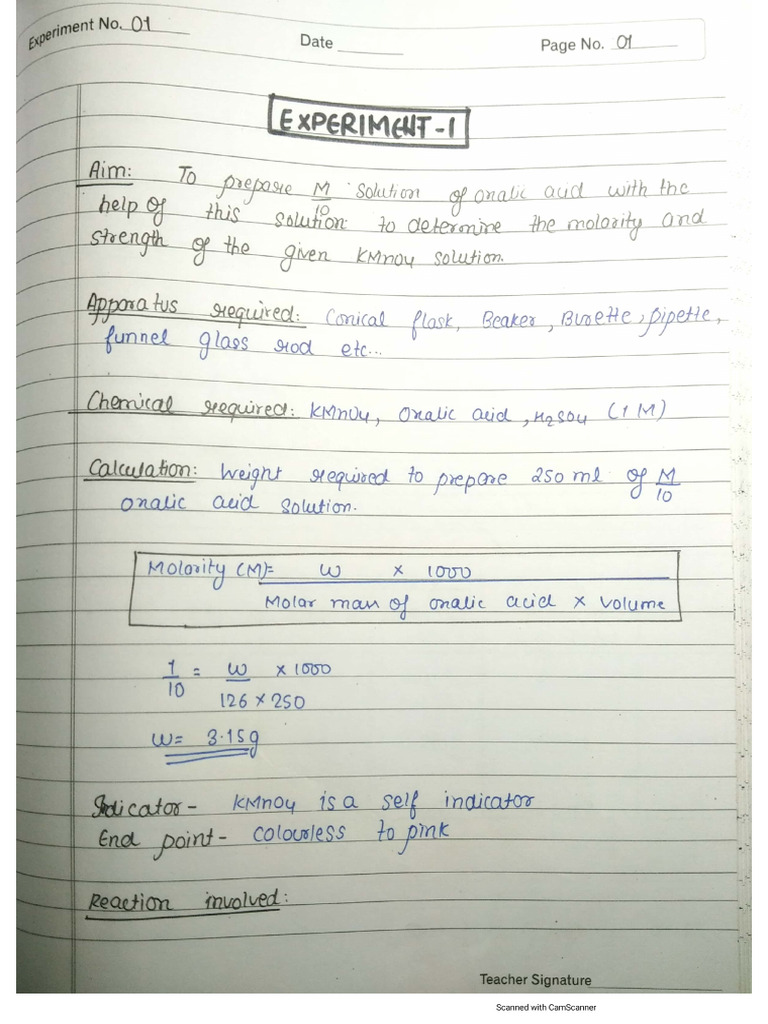 Experiment No. 01
Date
Page No. 01
EXPERIMENT-1
Aim: To prepare M/10 solution of onalic acid with the
help of this solution to determine the molarity and
strength of the given KMnO4 solution.
Apparatus required: Conical flask, Beaker, Burette, pipette,
funnel glass rod etc...
Chemical required: KMnO4, Onalic acid, H2SO4 (1 M)
Calculation: Weight required to prepare 250 ml of M/10
onalic acid solution.
Molarity (M)= w x 1000
Molar mass of onalic acid x volume
1/10 = w x 1000
126 x 250
w= 3.15g
Indicator - KMnO4 is a self indicator
End point - Colourless to pink
Reaction involved:
Teacher Signature
Scanned with CamScanner